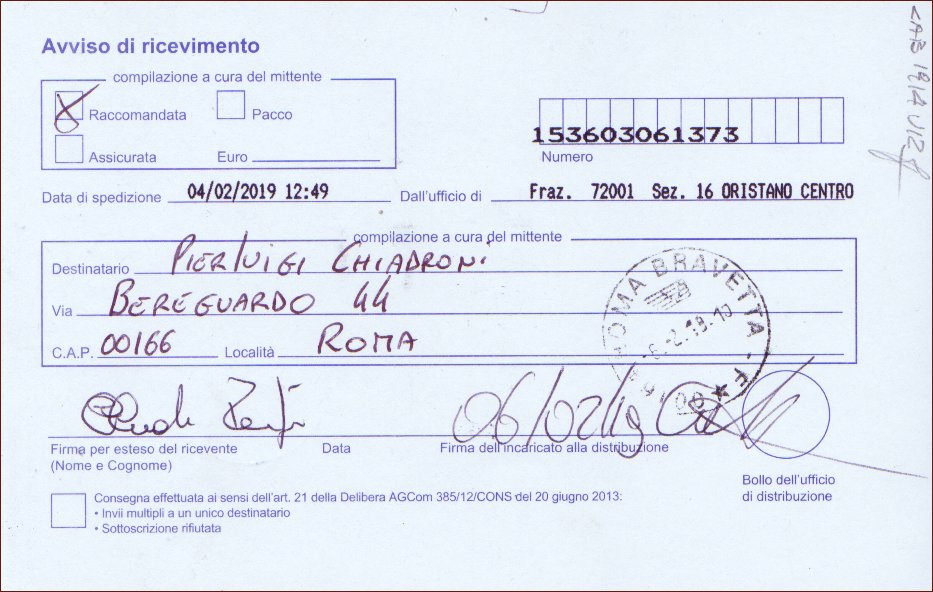 Avviso di ricevimento
compilazione a cura del mittente
Raccomandata Pacco
Assicurata Euro
153603061373
Numero
Data di spedizione 04/02/2019 12:49 Dall'ufficio di Fraz. 72001 Sez. 16 ORISTANO CENTRO
compilazione a cura del mittente
Destinatario PIERLUIGI CHIADRONI
Via BEREGUARDO 44
C.A.P. 00166 Località ROMA
ROMA BRAVETTA
06/02/19
Firma per esteso del ricevente Data Firma dell'incaricato alla distribuzione
(Nome e Cognome)
Bollo dell'ufficio
di distribuzione
Consegna effettuata ai sensi dell'art. 21 della Delibera AGCom 385/12/CONS del 20 giugno 2013:
• Invii multipli a un unico destinatario
• Sottoscrizione rifiutata